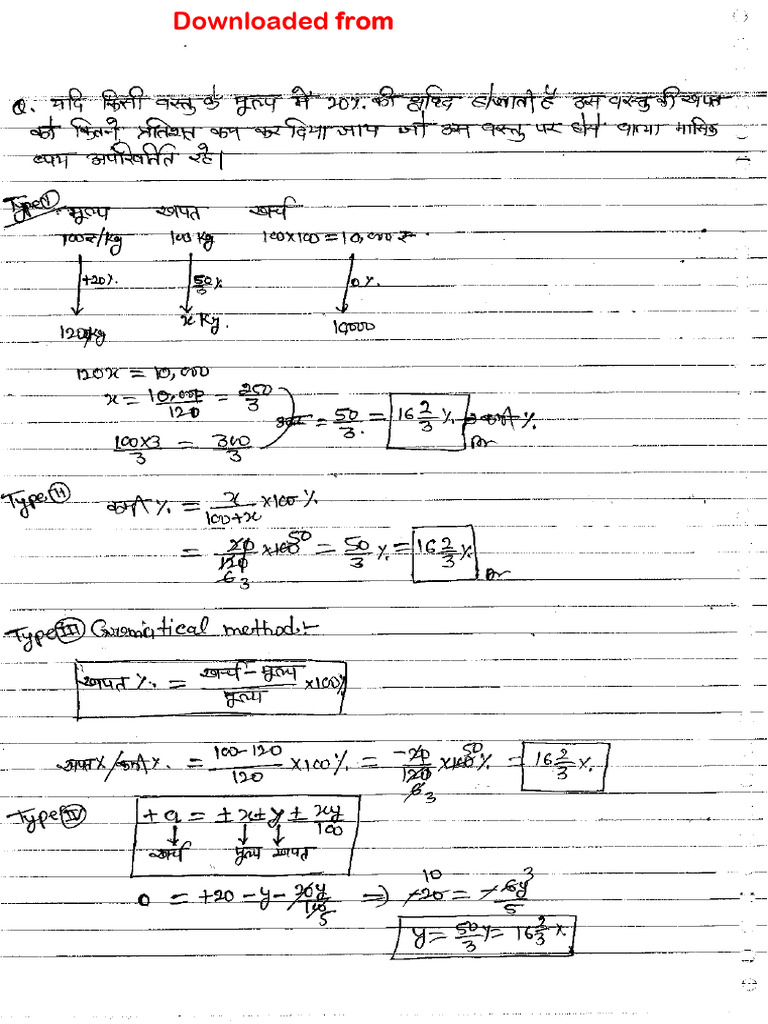 Downloaded from
Q. यदि किसी वस्तु के मूल्य में 20% की वृद्धि हो जाती है उस वस्तु की खपत
को कितने प्रतिशत कम कर दिया जाय जो उस वस्तु पर होने वाला मासिक
व्यय अपरिवर्तित रहे।
Type I मूल्य खपत खर्च
100₹/Kg 100Kg 100x100 = 10,000₹
+20% 50/3 % 0%
120/Kg x Kg. 10000
120x = 10,000
x = 10,000/120 = 250/3
= 50/3 = 16 2/3 % कमी %
100x3/3 = 300/3 Ans
Type II कमी % = x/100+x x100%
= 20/120 x100 = 50/3 % = 16 2/3 %
Ans
Type III Gremitical method:-
खपत % = खर्च - मूल्य/मूल्य x100%
खपत%/कमी% = 100-120/120 x100% = -20/120 x100% = 16 2/3 %
Type IV ±a = ±x±y± xy/100
खर्च मूल्य खपत
0 = +20 -y - 20y/100 ⇒ -20 = -6y/5
y = 50/3 % = 16 2/3 %